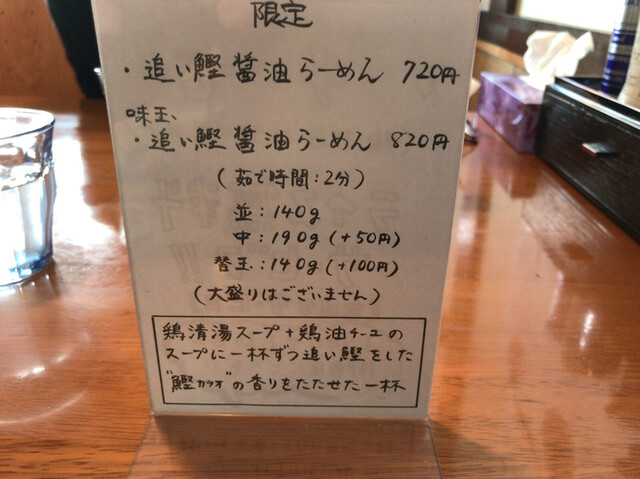 限定
・追い鰹醤油らーめん 720円
味玉、
・追い鰹醤油らーめん 820円
(茹で時間:2分)
並:140g
中:190g(+50円)
替玉:140g(+100円)
(大盛りはございません)
鶏清湯スープ+鶏油チーユの
スープに一杯ずつ追い鰹をした
"鰹カツオ"の香りをたたせた一杯